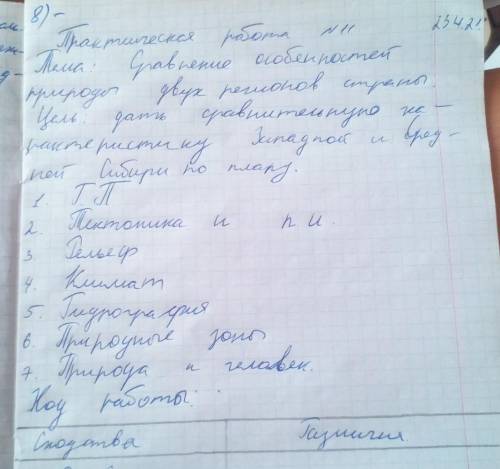 8)-
Практическая работа №11 23.4.21
Тема: Сравнение особенностей
природы двух регионов страны.
Цель: дать сравнительную ха-
рактеристику Западной и Сред-
ней Сибири по плану.
1. ГП
2. Тектоника и п и.
3 Рельеф
4. Климат
5. Гидрография
6 Природные зоны
7. Природа и человек.
Ход работы:
Сходства Различия